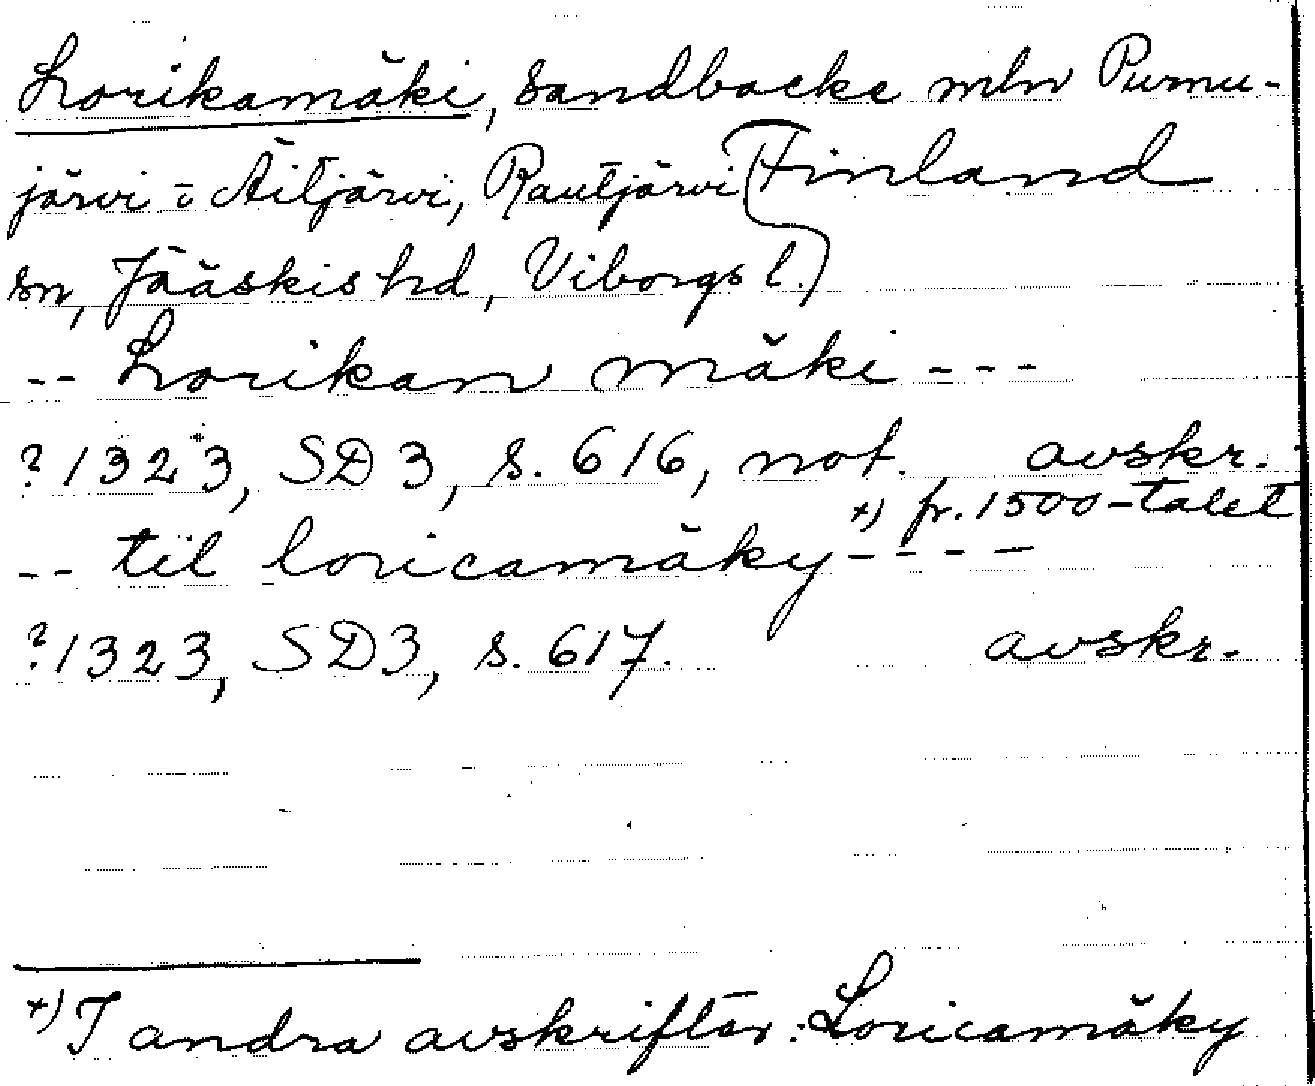 Lorikamäki, sandbacke mln Purnu-
järvi o Äitjärvi, Rautjärvi Finland
sn, Jääskis hd, Viborgs l.)
-- Lorikan mäki ---
?1323, SD 3, s. 616, not. avskr.
+) fr. 1500-talet
-- til loricamäky ----
?1323, SD3, s. 617. avskr.
+) I andra avskrifter: Loricamäky